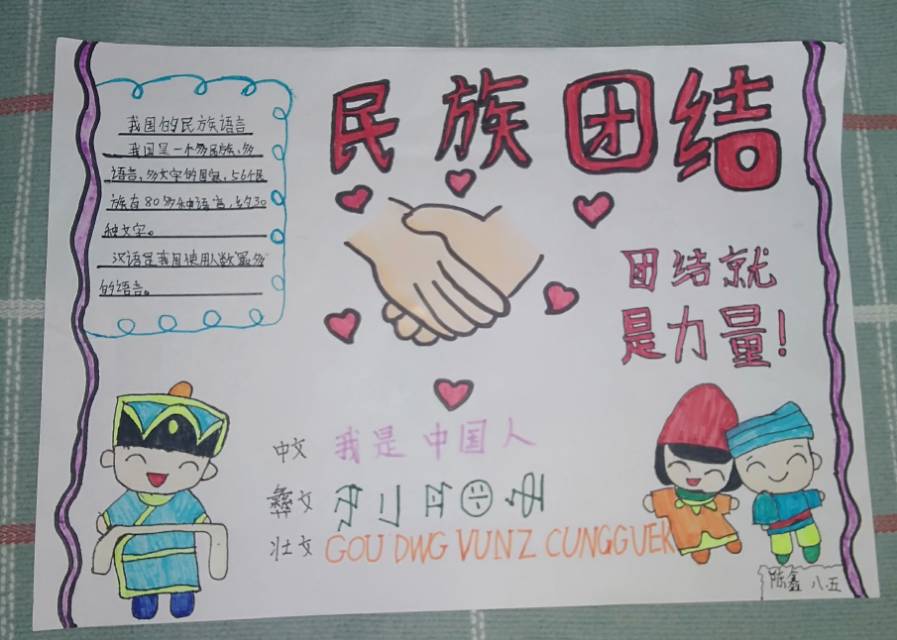 民族团结
我国的民族语言
我国是一个多民族、多
语言、多文字的国家，56个民
族有80多种语言，约30
种文字。
汉语是我国使用人数最多
的语言。
团结就
是力量！
中文 我是中国人
彝文
壮文 GOU DWG VUNZ CUNGGUEK
陈鑫 八.五